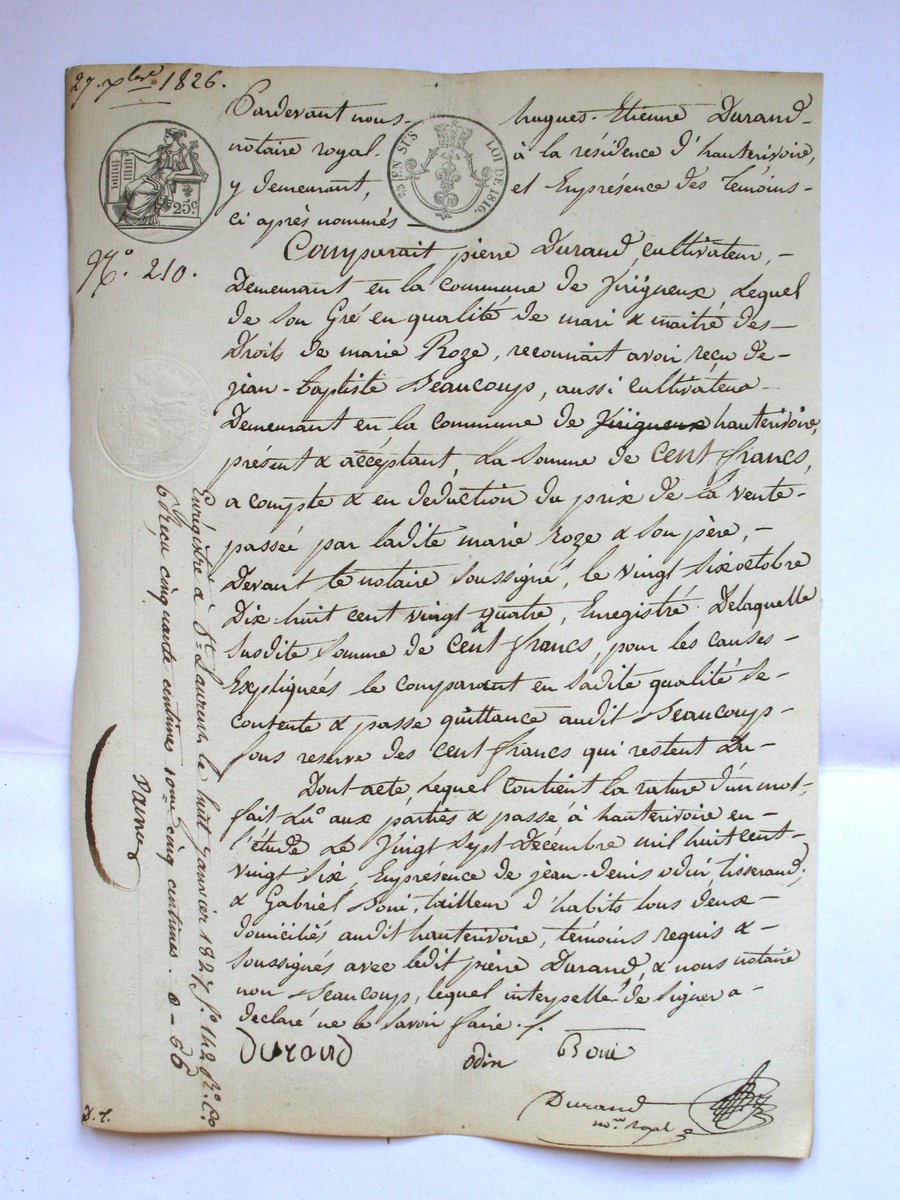 27. Xbre 1826.
Pardevant nous- hugues-Etienne Durand-
notaire royal. à la résidence d'hauterivoire,
y demeurant, et Enprésence des témoins-
ci après nommés-
25c
25 EN SUS LOI DE 1816.
N.° 210.
Comparait pierre Durand, cultivateur,-
Demeurant en la commune de Viriqueux, Lequel
de son Gré en qualité de mari & maitre des-
Droits de marie Roze, reconnait avoir reçu de-
jean-baptiste Beaucoup, aussi cultivateur
Demeurant en la commune de Viriqueux hauterivoire,
présent & accéptant, La Somme de cent francs,
a compte & en deduction du prix de la vente-
passée par ladite marie roze & son père,-
Devant le notaire soussigné, le vingt six octobre
Dix-huit cent vingt quatre, Enregistré. Delaquelle
susdite somme de cent francs, pour les causes-
Expliquées le comparant en sadite qualité se-
contente & passe quittance audit Beaucoup-
sous reserve des cent francs qui restent Du-
Dont acte Lequel contient la rature d'un mot,
fait Lu aux parties & passé à hauterivoire en-
l'étude Le Vingt sept Décembre mil huit cent-
vingt six, Enprésence de jean-Denis odin, tisserand,
& Gabriel Boni, tailleur d'habits tous deux-
domiciliés audit hauterivoire, témoins requis &-
soussignés avec ledit pierre Durand, & nous notaire
non Beaucoup, lequel interpellé de signer a-
declaré ne le savoir faire./.
Durand odin Boni
Durand
no.re royal
Enregistré à St. Laurent, le huit Janvier 1827 f.° 142 R.° C.
6 Reçu cinquante centimes 10me cinq centimes. 0-55
D. t.